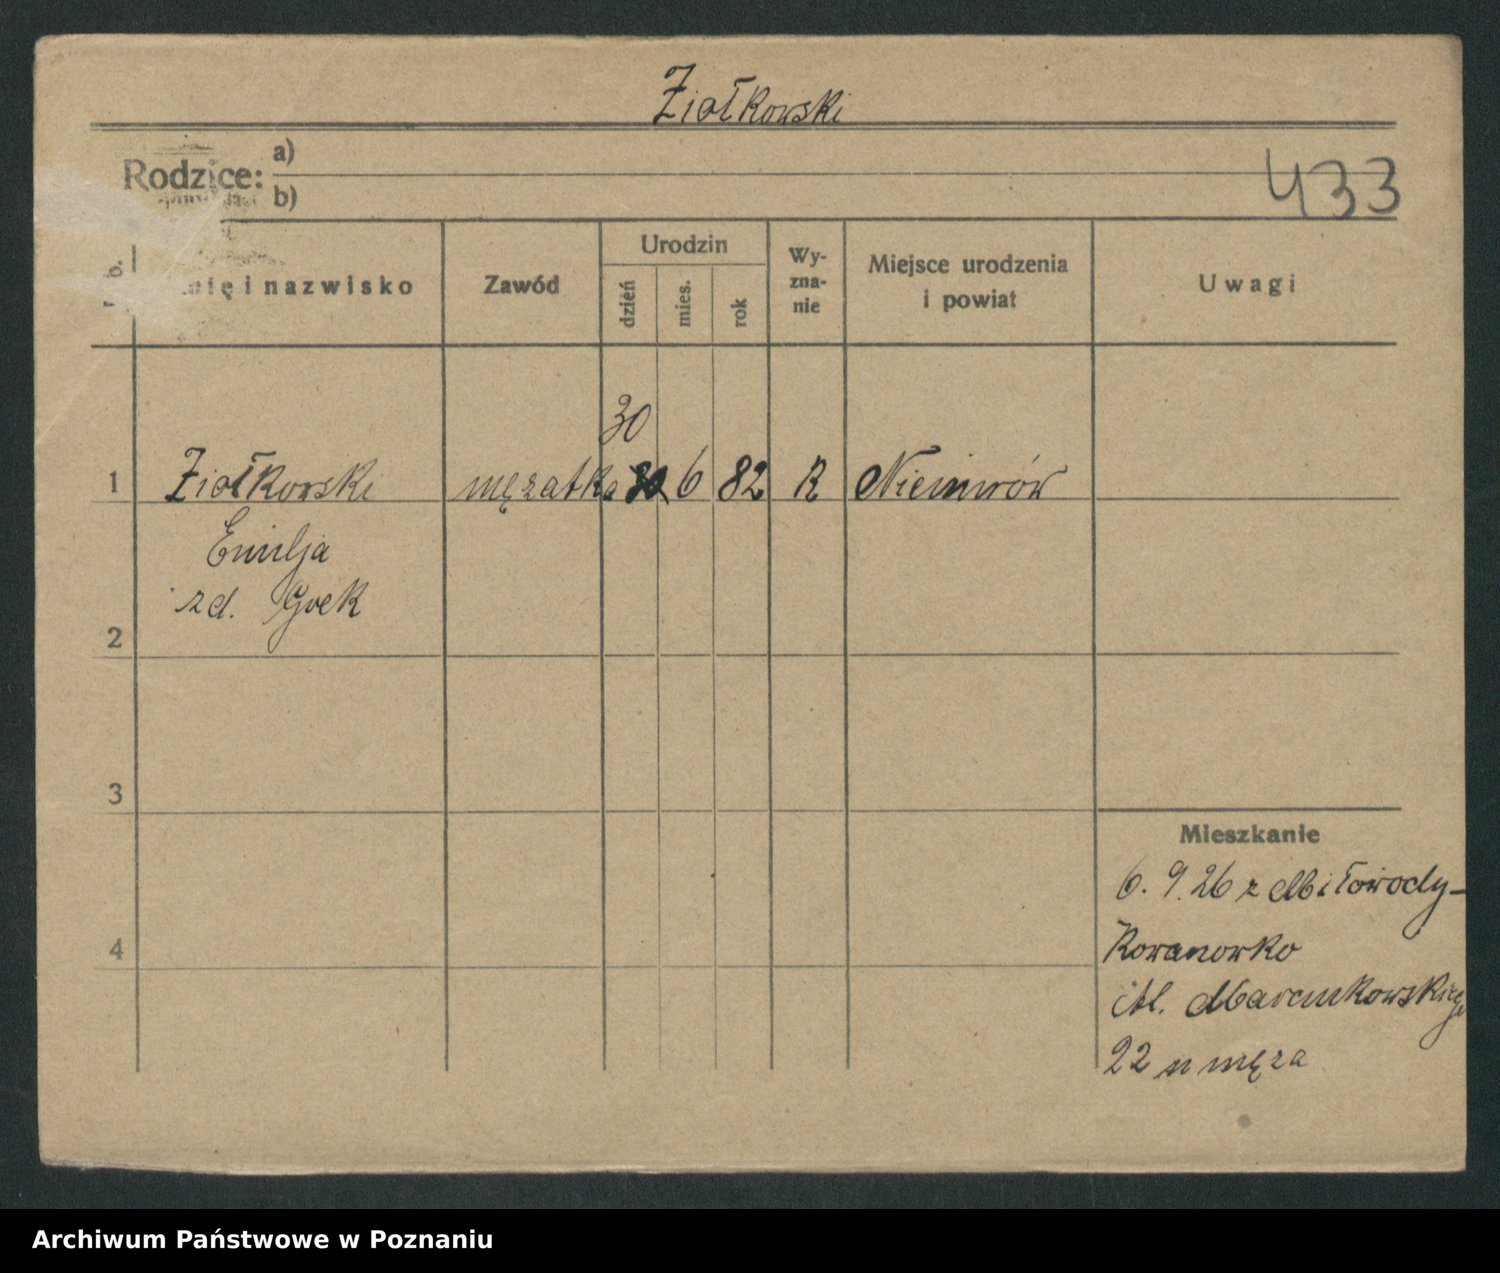 Ziołkowski
Rodzice:
a)
b)
433
mię i nazwisko
Zawód
Urodzin
dzień
mies.
rok
Wy-
zna-
nie
Miejsce urodzenia
i powiat
Uwagi
30
1 Ziołkowski mężatka 30 6 82 R Niemirów
Emilja
zd.
2
3
Mieszkanie
6. 9. 26 z Miłowody-
Kowanowko
4
Marcinkowskiego
22 u męża
Archiwum Państwowe w Poznaniu